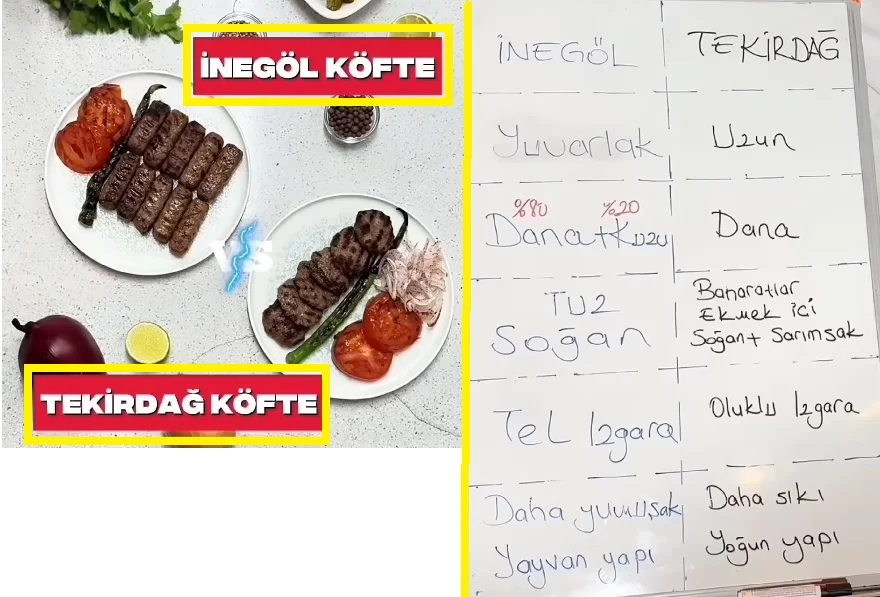 İNEGÖL KÖFTE
VS
TEKİRDAĞ KÖFTE
İNEGÖL
TEKİRDAĞ
Yuvarlak
Uzun
%80 %20
Dana+Kuzu
Dana
Tuz
Soğan
Baharatlar
Ekmek içi
Soğan+ Sarımsak
Tel Izgara
Oluklu Izgara
Daha yumuşak
Yayvan yapı
Daha sıkı
Yoğun yapı